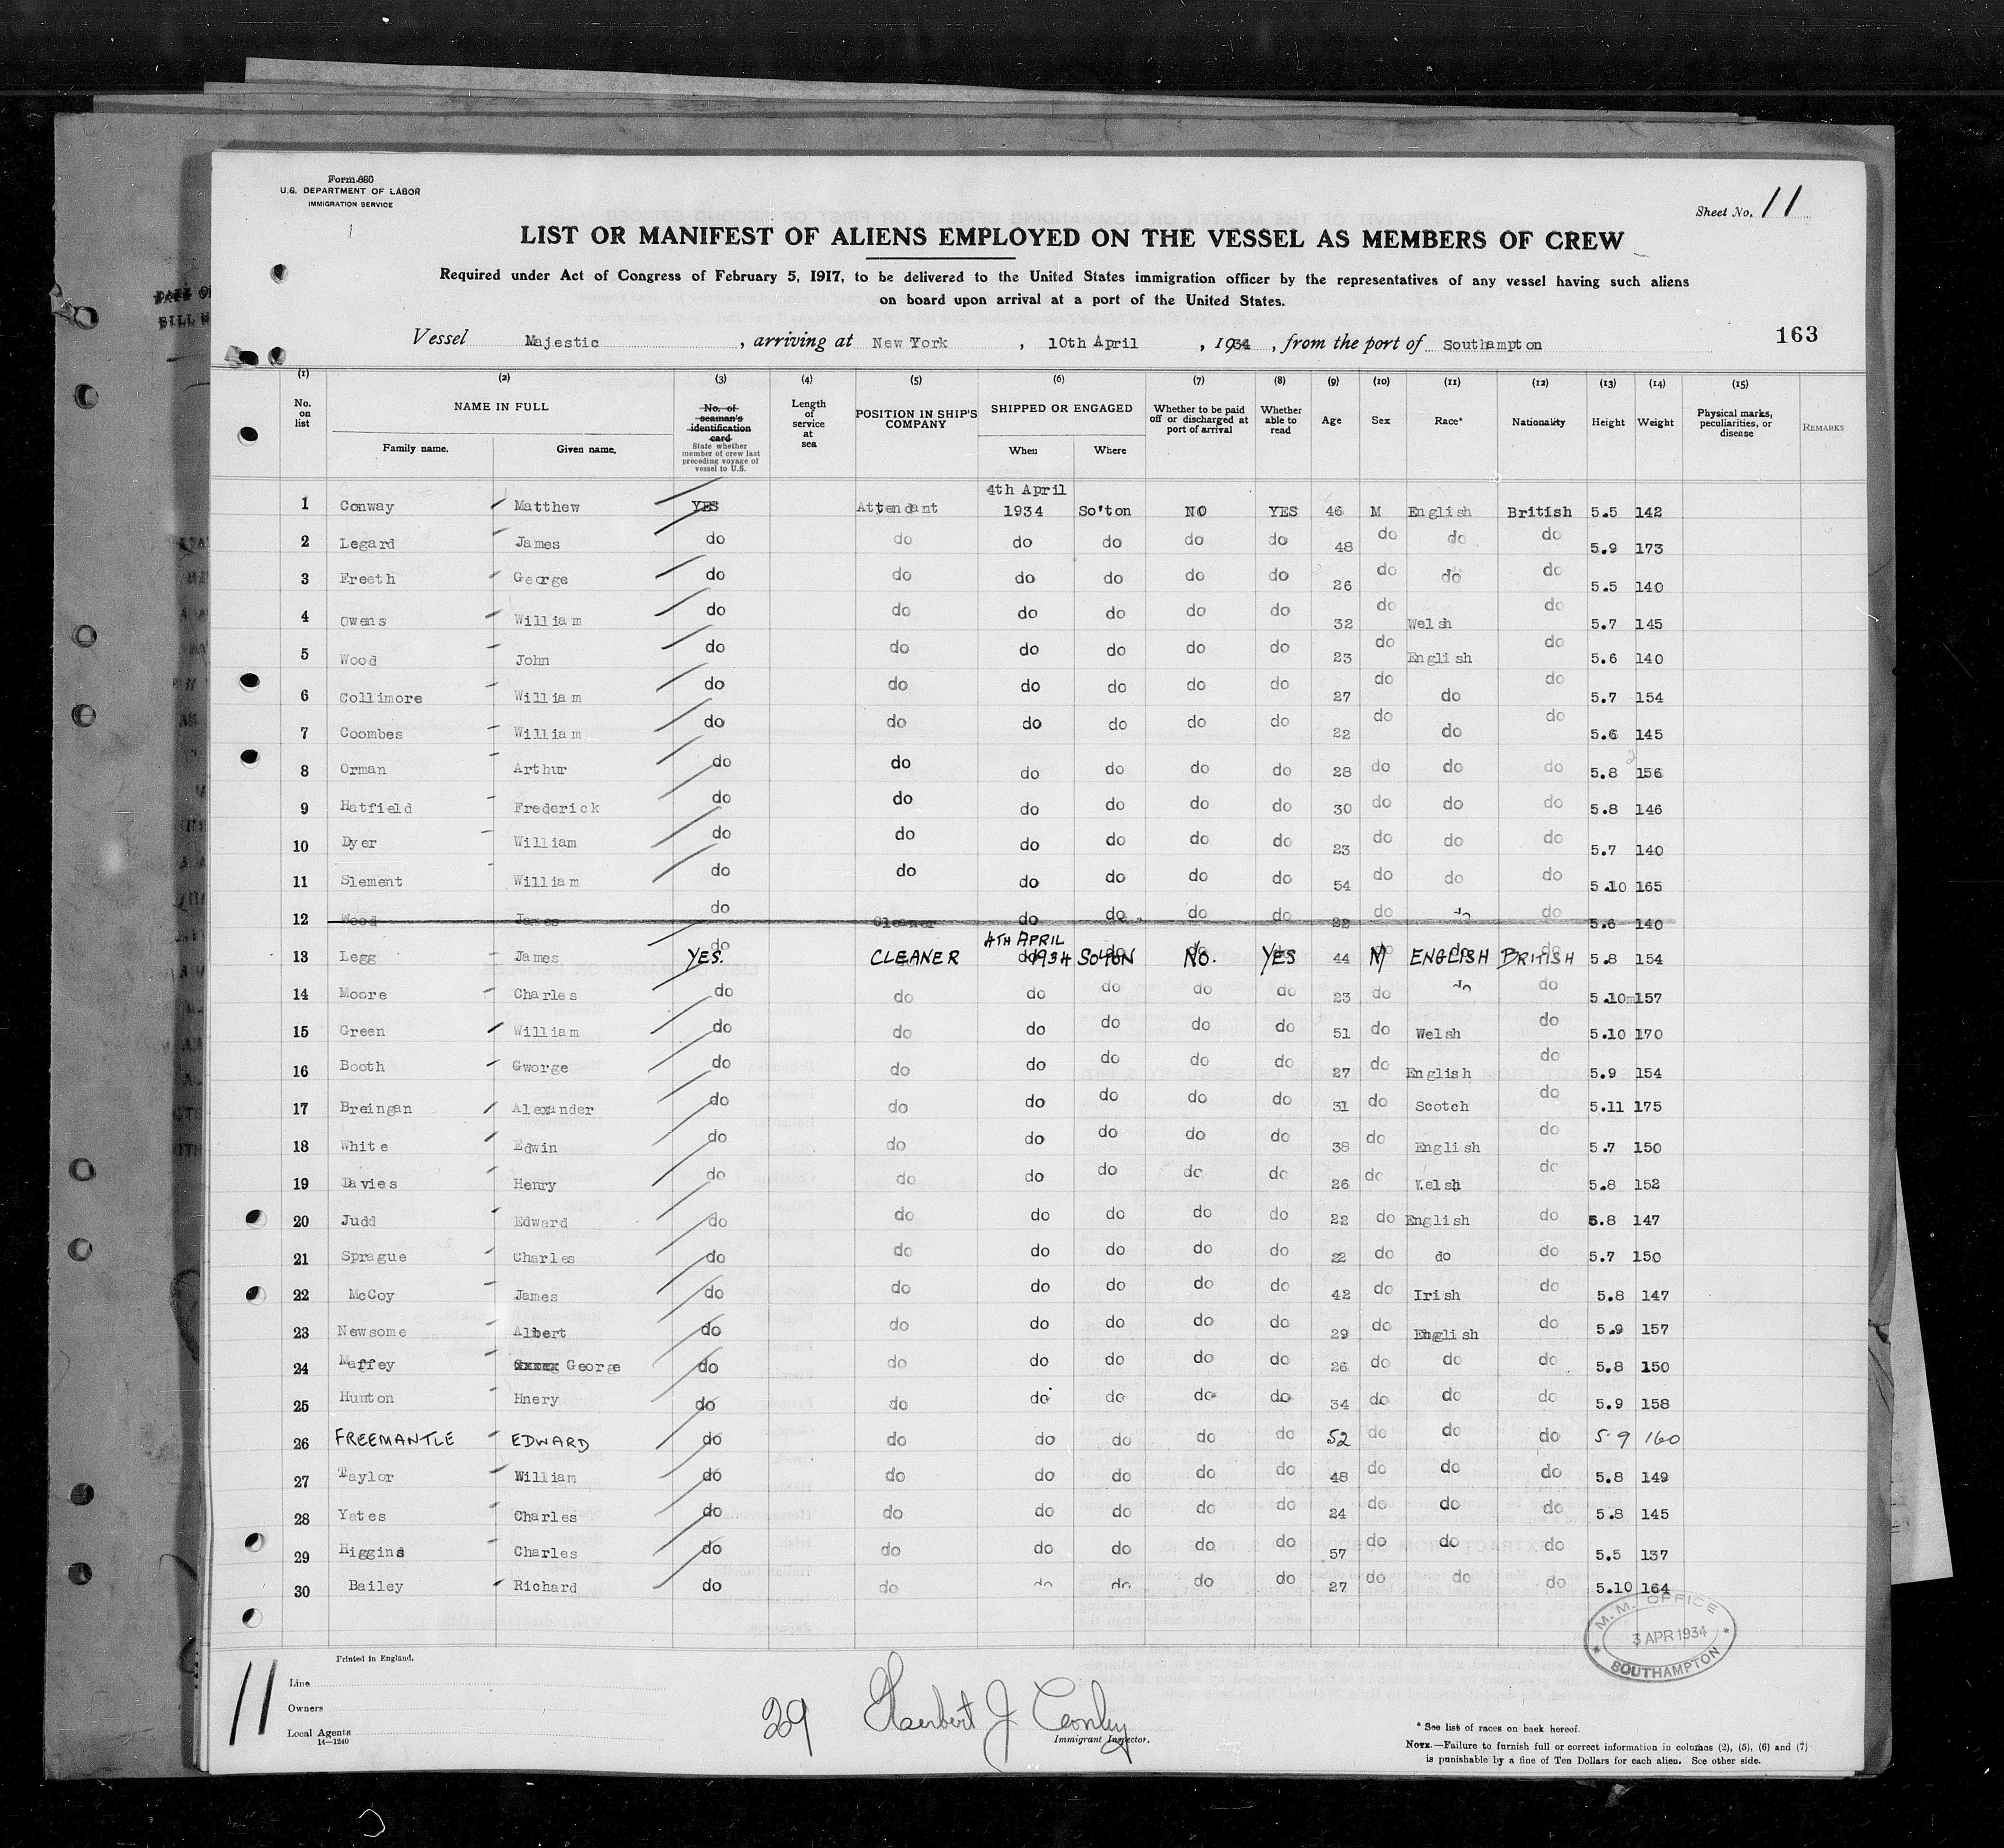 Form 680
U.S. DEPARTMENT OF LABOR
IMMIGRATION SERVICE
Sheet No. 11
LIST OR MANIFEST OF ALIENS EMPLOYED ON THE VESSEL AS MEMBERS OF CREW
Required under Act of Congress of February 5, 1917, to be delivered to the United States immigration officer by the representatives of any vessel having such aliens
on board upon arrival at a port of the United States.
Vessel Majestic , arriving at New York , 10th April , 1934 , from the port of Southampton
163
(1) (2) (3) (4) (5) (6) (7) (8) (9) (10) (11) (12) (13) (14) (15)
No. on list NAME IN FULL Family name. Given name. No. of seaman's identification card State whether member of crew last preceding voyage of vessel to U.S. Length of service at sea POSITION IN SHIP'S COMPANY SHIPPED OR ENGAGED When Where Whether to be paid off or discharged at port of arrival Whether able to read Age Sex Race* Nationality Height Weight Physical marks, peculiarities, or disease REMARKS
1 Conway Matthew YES Attendant 4th April 1934 So'ton NO YES 46 M English British 5.5 142
2 Legard James do do do do do do 48 do do do 5.9 173
3 Freeth George do do do do do do 26 do do do 5.5 140
4 Owens William do do do do do do 32 do Welsh do 5.7 145
5 Wood John do do do do do do 23 do English do 5.6 140
6 Collimore William do do do do do do 27 do do do 5.7 154
7 Coombes William do do do do do do 22 do do do 5.6 145
8 Orman Arthur do do do do do do 28 do do do 5.8 156
9 Hatfield Frederick do do do do do do 30 do do do 5.8 146
10 Dyer William do do do do do do 23 do do do 5.7 140
11 Slement William do do do do do do 54 do do do 5.10 165
12 Wood James do Cleaner do do do do 22 do do do 5.6 140
13 Legg James YES. CLEANER 4TH APRIL 1934 SO'TON NO. YES 44 M ENGLISH BRITISH 5.8 154
14 Moore Charles do do do do do do 23 do do do 5.10 157
15 Green William do do do do do do 51 do Welsh do 5.10 170
16 Booth Gworge do do do do do do 27 do English do 5.9 154
17 Breingan Alexander do do do do do do 31 do Scotch do 5.11 175
18 White Edwin do do do do do do 38 do English do 5.7 150
19 Davies Henry do do do do do do 26 do Welsh do 5.8 152
20 Judd Edward do do do do do do 22 do English do 5.8 147
21 Sprague Charles do do do do do do 22 do do do 5.7 150
22 McCoy James do do do do do do 42 do Irish do 5.8 147
23 Newsome Albert do do do do do do 29 do English do 5.9 157
24 Maffey George do do do do do do 26 do do do 5.8 150
25 Hunton Hnery do do do do do do 34 do do do 5.9 158
26 FREEMANTLE EDWARD do do do do do do 52 do do do 5 9 160
27 Taylor William do do do do do do 48 do do do 5.8 149
28 Yates Charles do do do do do do 24 do do do 5.8 145
29 Higgins Charles do do do do do do 57 do do do 5.5 137
30 Bailey Richard do do do do do do 27 do do do 5.10 164
M. M. OFFICE
3 APR 1934
SOUTHAMPTON
Printed in England.
11
Line
Owners
Local Agents
14—1240
29 Herbert J Conley
Immigrant Inspector.
* See list of races on back hereof.
NOTE.—Failure to furnish full or correct information in columns (2), (5), (6) and (7)
is punishable by a fine of Ten Dollars for each alien. See other side.